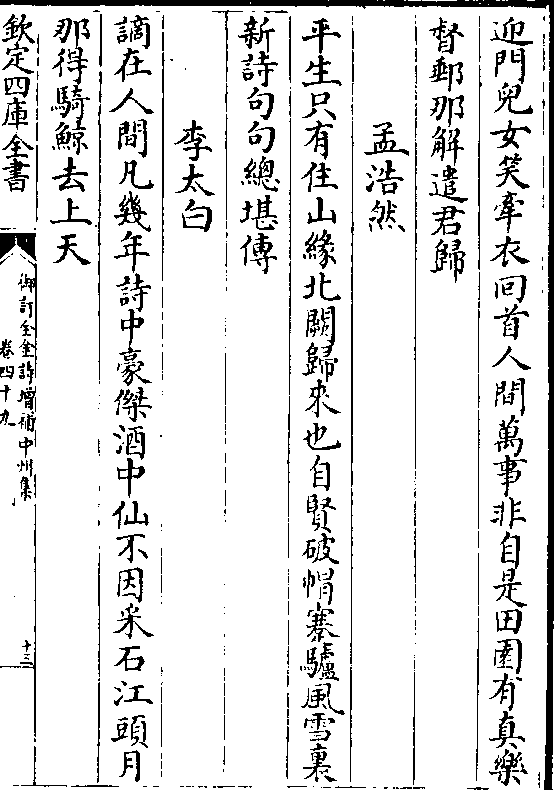 迎門兒女笑牽衣回首人間萬事非自是田園有真樂
督郵那解遣君歸
孟浩然
平生只有住山緣北闕歸來也自賢破帽蹇驢風雪裏
新詩句句總堪傳
李太白
謫在人間凡幾年詩中豪傑酒中仙不因采石江頭月
那得騎鯨去上天
欽定四庫全書
御訂全金詩增補中州集
卷四十九
十三